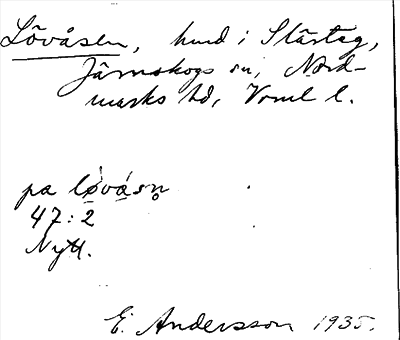 Lövåsen, hmd i Stårteg,
Järnskogs sn, Nord-
marks hd, Vrml l.
pa lǿvásn̥
47:2
Nytt.
E. Andersson 1935.